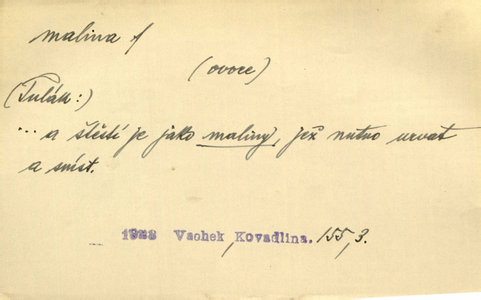 malina f
(ovoce)
(Tulák:)
... a štěstí je jako maliny, jež nutno urvat
a sníst.
1923 Vachek Kovadlina. 155, 3.